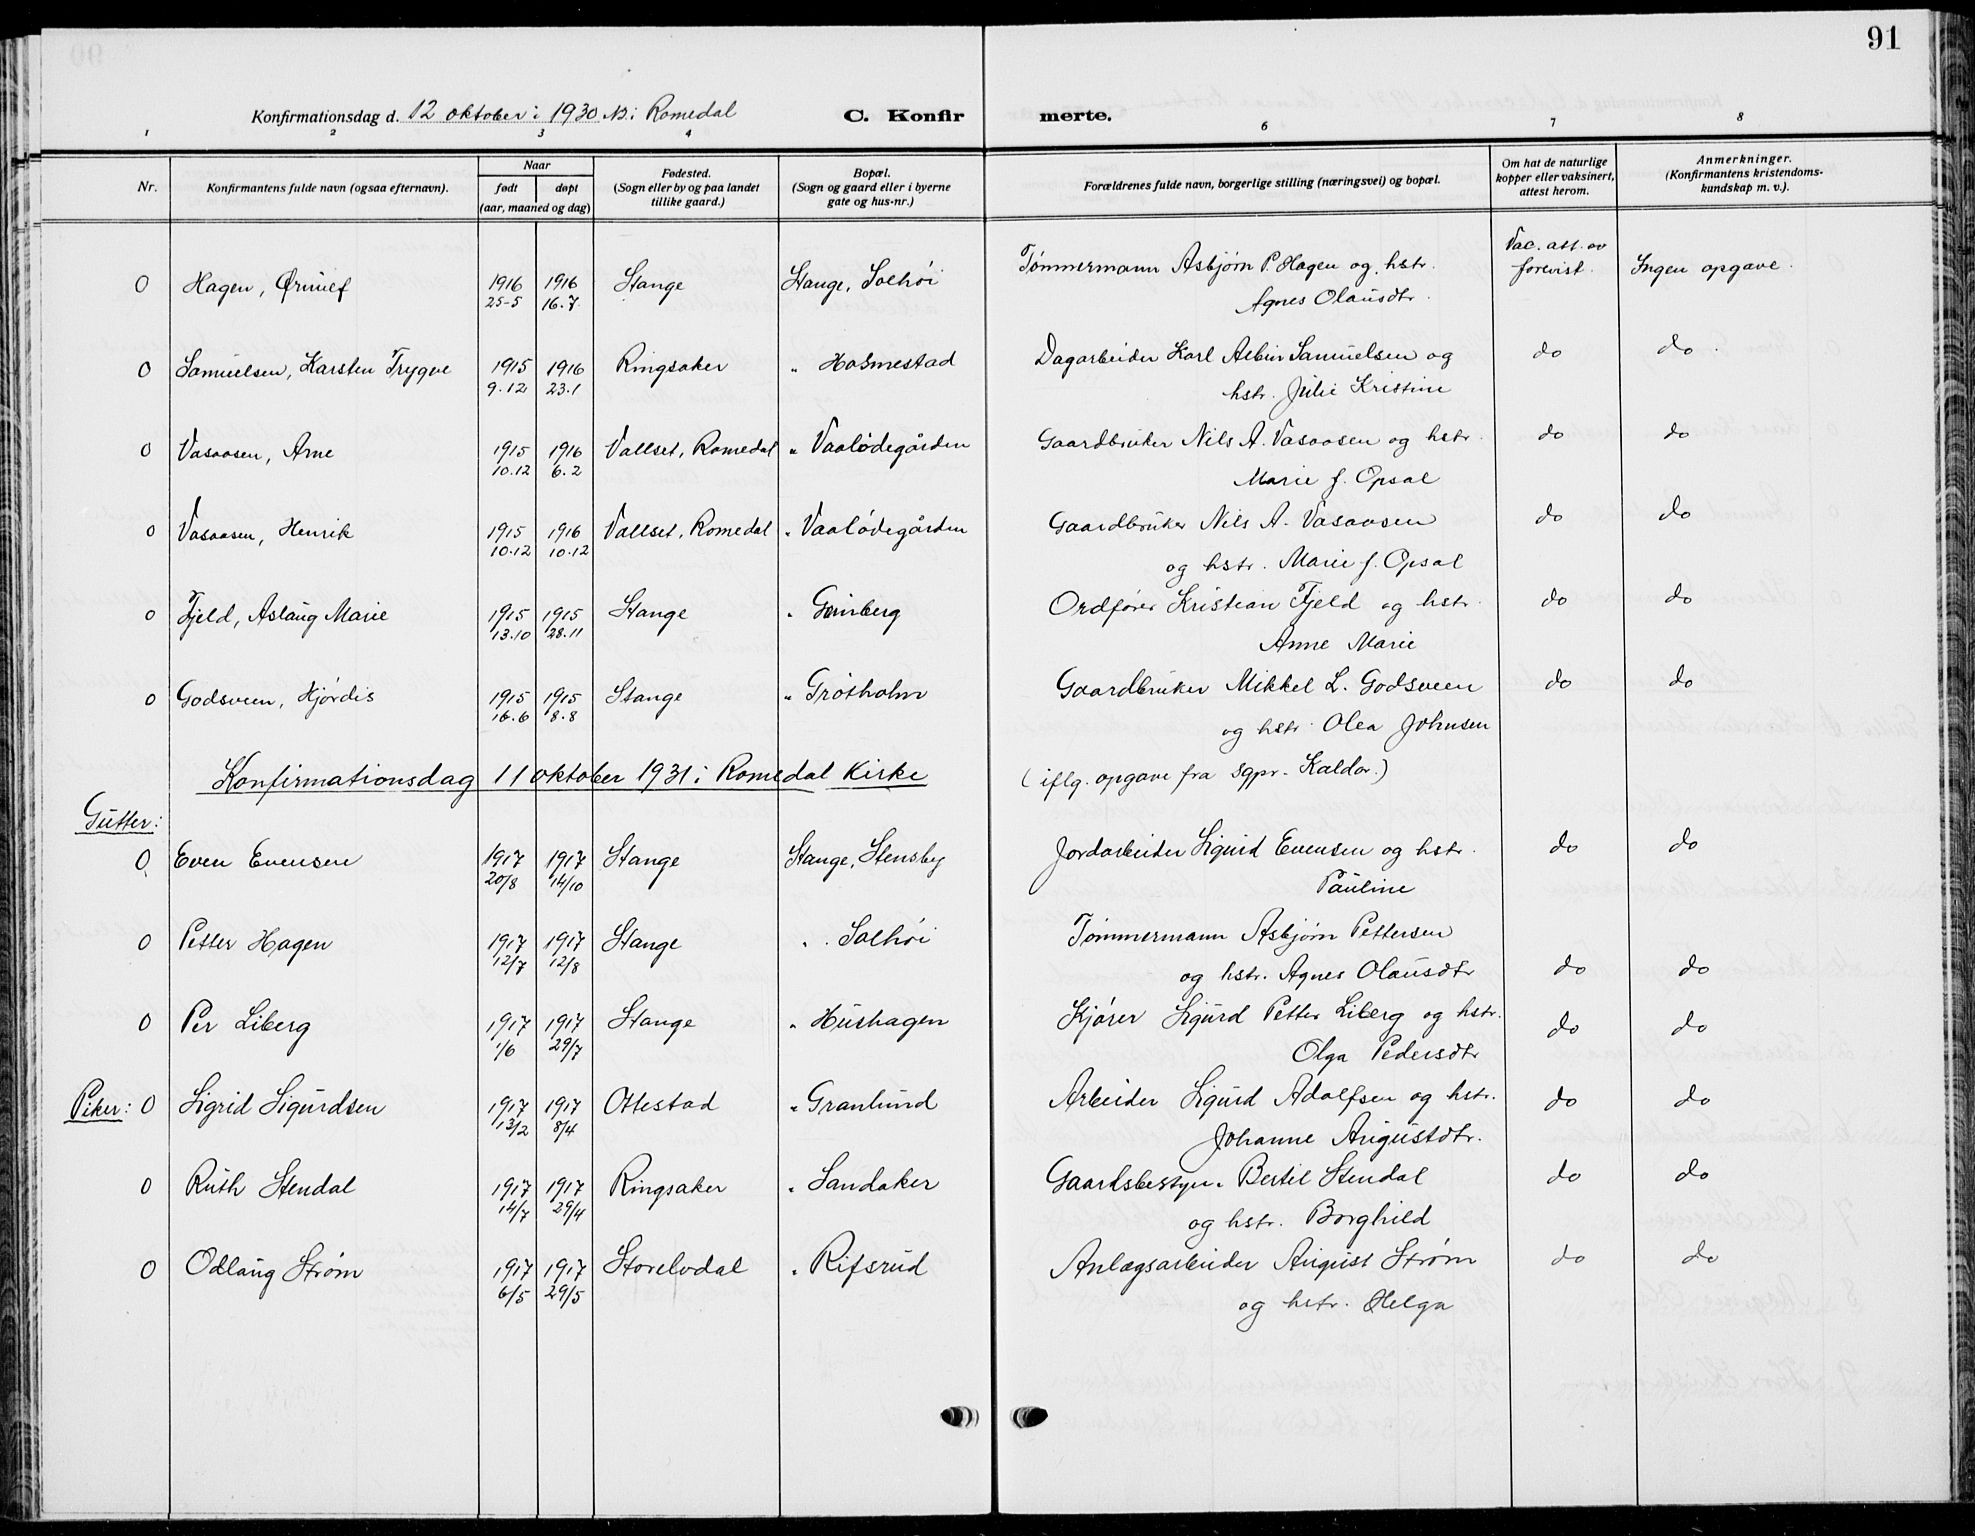 91
Konfirmationsdag d. 12 oktober i 1930 N: i Romedal C. Konfir merte.
1 2 3 4 6 7 8
Nr. Konfirmantens fulde navn (ogsaa efternavn). Naar født døpt (aar, maaned og dag) Fødested. (Sogn eller by og paa landet tillike gaard.) Bopæl. (Sogn og gaard eller i byerne gate og hus-nr.) Forældrenes fulde navn, borgerlige stilling (næringsvei) og bopæl. Om hat de naturlige kopper eller vaksinert, attest herom. Anmerkninger. (Konfirmantens kristendoms- kundskap m. v.).
0 Hagen, 1916 1916 Stange Stange, Solhøi Tømmermann Asbjørn P. Hagen og hstr. Vac. att. av forevist. Ingen opgave.
25-5 16.7 Agnes Olausdtr.
0 Samuelsen, Karsten Trygve 1915 1916 Ringsaker " Holmestad Dagarbeider Karl Albin Samuelsen og do do.
9.12 23.1 hstr. Julie Kristine
0 Vasaasen, Arne 1915 1916 Vallset, Romedal " Vaalødegården Gaardbruker Nils A. Vasaasen og hstr. do do
10.12 6.2 Marie f. Opsal
0 Vasaasen, Henrik 1915 1916 Vallset, Romedal " Vaalødegården Gaardbruker Nils A. Vasaasen do do
10.12 10.12 og hstr. Marie f. Opsal
0 Fjeld, Aslaug Marie 1915 1915 Stange " Ordfører Kristian Fjeld og hstr. do do
13.10 28.11 Anne Marie
0 Godsveen, Hjørdis 1915 1915 Stange " Grøtholm Gaardbruker Mikkel L. Godsveen do do
16.6 8.8 og hstr. Olea Johnsen
Konfirmationsdag 11 oktober 1931 i Romedal Kirke (iflg. opgave fra sgpr. Kaldor.)
Gutter:
0 Even Evensen 1917 1917 Stange Stange, Stensby Jordarbeider Sigurd Evensen og hstr. do do
20/8 14/10 Pauline
0 Petter Hagen 1917 1917 Stange " Solhøi Tømmermann Asbjørn Pettersen
12/7 12/8 og hstr. Agnes Olausdtr do do
0 Per Liberg 1917 1917 Stange " Hushagen Kjører Sigurd Petter Liberg og hstr. do do
1/6 29/7 Olga Pedersdtr
Piker: 0 Sigrid Sigurdsen 1917 1917 Ottestad " Granlund Arbeider Sigurd Adolfsen og hstr. do do
13/2 8/4 Johanne Augustdtr.
0 Ruth Stendal 1917 1917 Ringsaker " Sandaker Gaardsbestyr. Bertil Stendal do do
14/7 29/4 og hstr. Borghild
0 Odlaug Strøm 1917 1917 Storelvdal " Rifsrud Anlægsarbeider August Strøm do do
6/5 29/5 og hstr. Helga